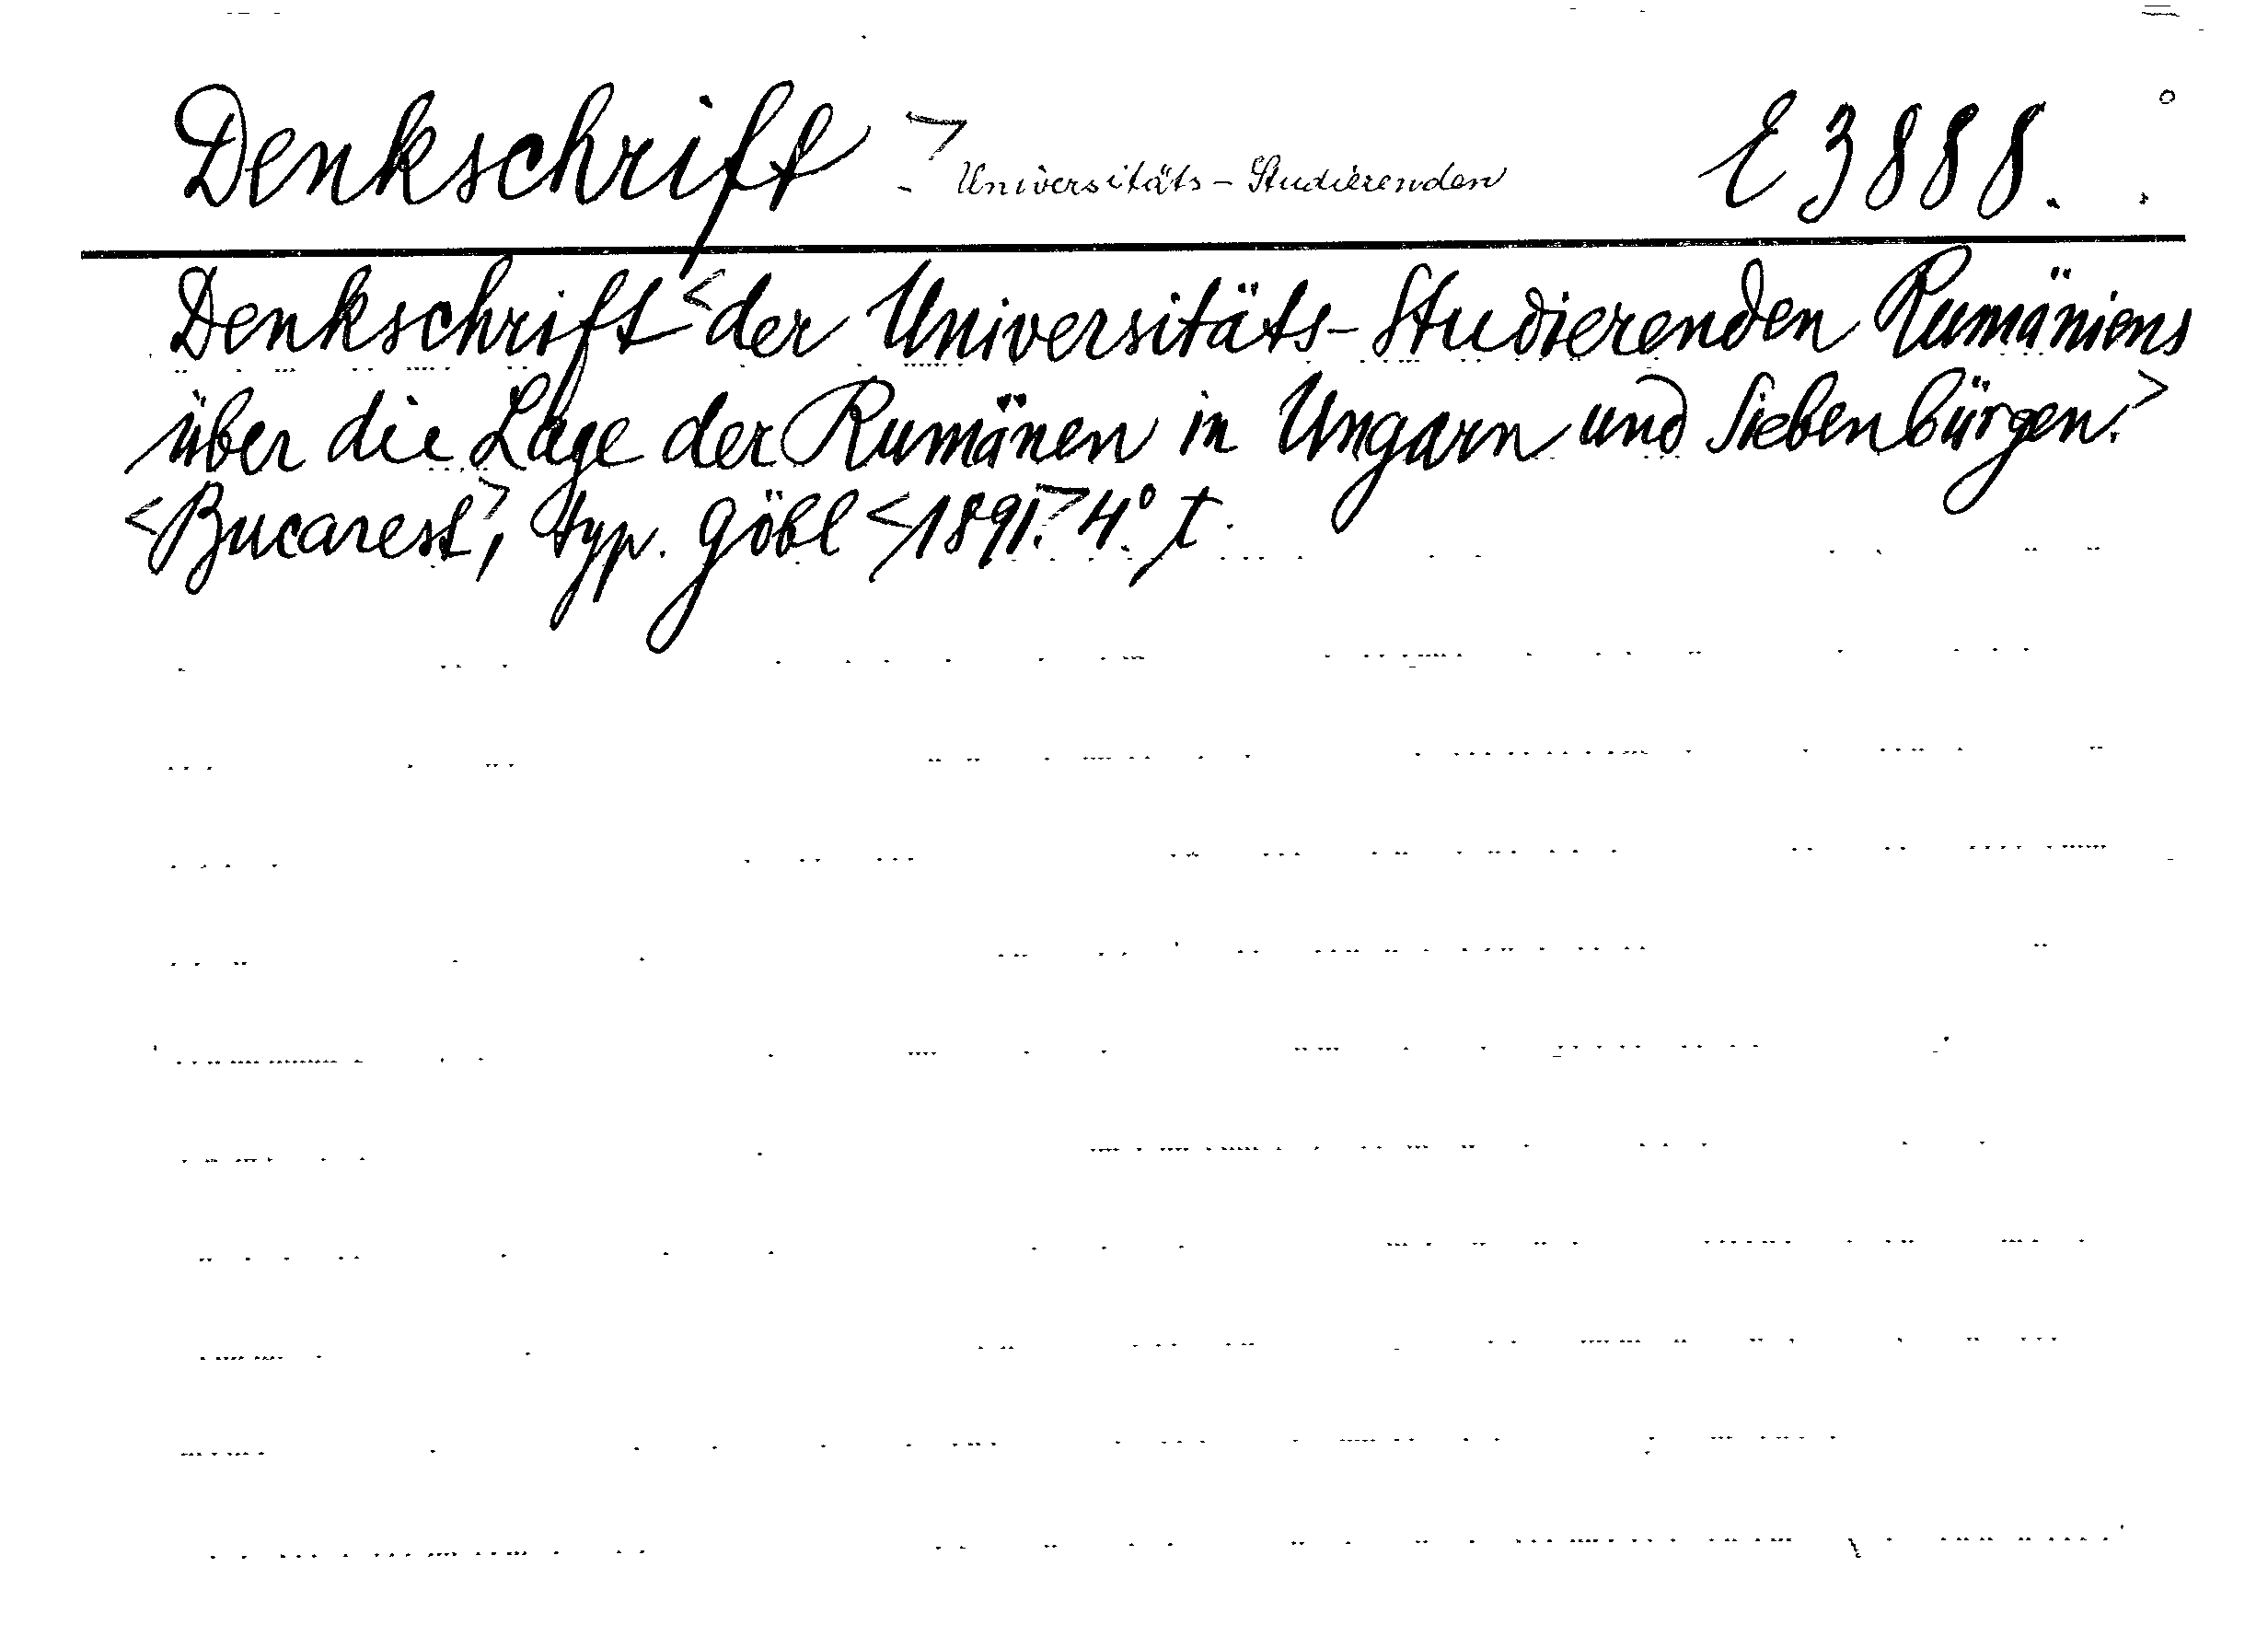 Denkschrift > - Universitäts-Studierenden E 3888.
Denkschrift <der Universitäts-Studierenden Rumäniens
über die Lage der Rumänen in Ungarn und Siebenbürgen.>
<Bucarest>, typ. Göbl <1891.> 4°.